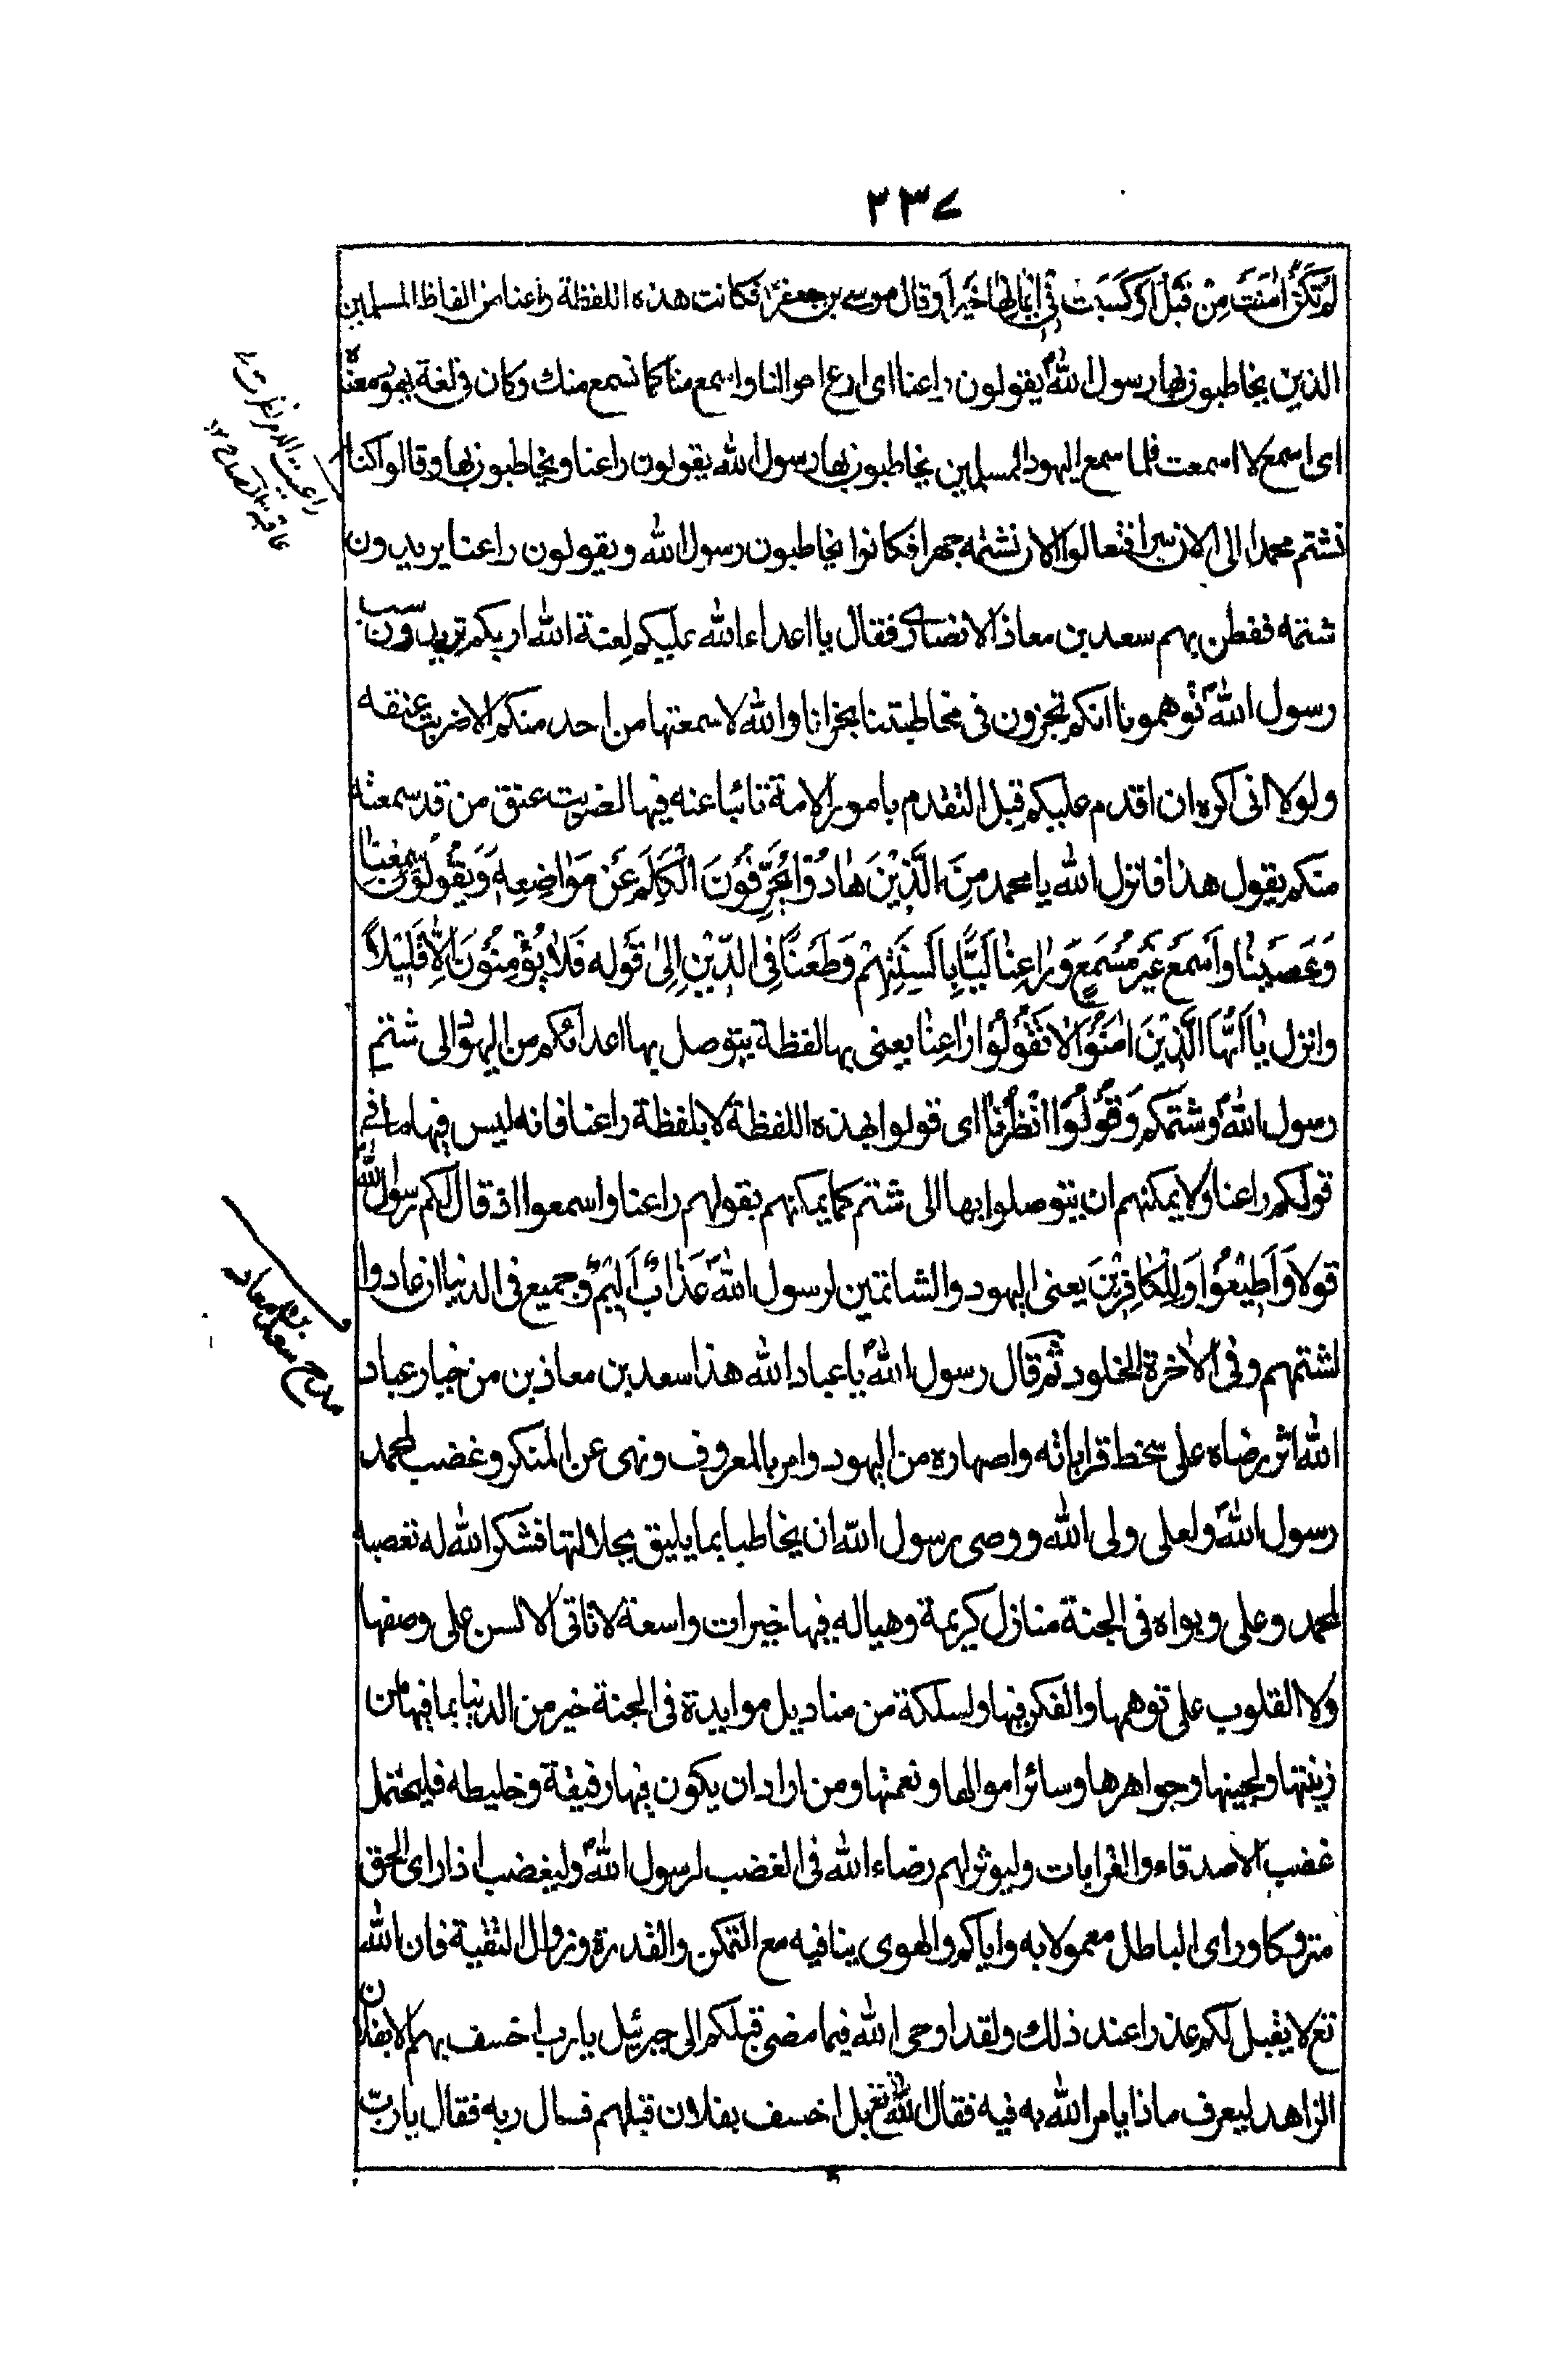 ٢٣٧
لَمْ تَكُنْ اٰمَنَتْ مِنْ قَبْلُ اَوْ كَسَبَتْ فِى اِيمٰانِهٰا خَيْراً وقال موسى بن جعفر فكانت هذه اللفظة راعنا من الفاظ المسلمين
الذين يخاطبون بها رسول اللهؐ يقولون راعنا اى ارع احوالنا واسمع مناكما نسمع منك وكان فى لغة يهود معناه
اى اسمع لا اسمعت فلما سمع اليهود المسلمين يخاطبون بها رسول الله يقولون راعنا ويخاطبون بها وقالوا كنا
نشتم محمدا الى الان سرا فتعالوا الان نشتمه جهرا فكانوا يخاطبون رسول الله ويقولون راعنا يريدون
شتمه ففطن بهم سعد بن معاذ الانصارى فقال يا اعداء الله عليكم لعنة الله اريكم تريدون سب
رسول اللهؐ توهمونا انكم تجرون فى مخاطبتنا مجرانا والله لا سمعتها من احد منكم الا ضربت عنقه
ولولا انى اكره ان اقدم عليكم قبل التقدم بامور الامة نائبا عنه فيها لضربت عنق من قد سمعته
منكم يقول هذا فانزل الله يا محمد مِنَ الَّذِيْنَ هٰادُوْا يُحَرِّفُوْنَ الْكَلِمَ عَنْ مَوٰاضِعِهِ وَيَقُوْلُوْنَ سَمِعْنٰا
وَعَصَيْنٰا وَاسْمَعْ غَيْرَ مُسْمَعٍ وَرٰاعِنٰا لَيًّا بِاَلْسِنَتِهِمْ وَطَعْنًا فِى الدِّيْنِ اِلىٰ قوله فَلاٰ يُؤْمِنُوْنَ اِلاّٰ قَلِيْلاً
وانزل يٰا اَيُّهَا الَّذِيْنَ اٰمَنُوْا لاٰ تَقُوْلُوْا رٰاعِنٰا يعنى بها لفظة يتوصل بها اعدائكم من اليهود الى شتم
رسول اللهؐ وشتمكم وَقُوْلُوْا انْظُرْنٰا اى قولوا بهذه اللفظة لا بلفظة راعنا فانه ليس فيها ما فى
قولكم راعنا ولا يمكنهم ان يتوصلوا بها الى شتم كما يمكنهم بقولهم راعنا واسمعوا اذ قال لكم رسول الله
قولا وَاَطِيْعُوْا وَلِلْكٰافِرِيْنَ يعنى اليهود والشاتمين لرسول اللهؐ عَذٰابٌ اَلِيْمٌ وجميع فى الدنيا ان عادوا
لشتمهم وفى الاخرة الخلود ثم قال رسول اللهؐ يا عباد الله هذا سعد بن معاذ بن من خيار عباد
الله اثر رضاه على سخط قراباته واصهاره من اليهود وامر بالمعروف ونهى عن المنكر وغضب لمحمد
رسول اللهؐ ولعلى ولى الله ووصى رسول الله ان يخاطبا بما يليق بجلالتها فشكر الله له تعصبه
لمحمد وعلى وبواه فى الجنة منازل كريمة وهيا له فيها خيرات واسعة لا تاتى الالسن على وصفها
ولا القلوب على توهمها والفكر فيها ولسلكة من مناديل موايدة فى الجنة خير من الدنيا بما فيها من
زينتها ولجينها وجواهرها وسائر اموالها ونعمتها ومن اراد ان يكون فيها رفيقة وخليطه فليحتمل
غضب الاصدقاء والقرابات وليوثر لهم رضاء الله فى الغضب لرسول اللهؐ وليغضب اذا راى الحق
متروكا وراى الباطل معمولا به واياكم والهوى ينافيه مع التمكن والقدرة وزوال التقية فان الله
تع لا يقبل لكم عذرا عند ذلك ولقد اوحى الله فيما مضى قبلكم الى جبرئيل يا رب اخسف بهم الا بفلان
الزاهد ليعرف ماذا يامر الله به فيه فقال الله تع بل اخسف بفلان قبلهم فسال ربه فقال يا رب
مدح سعد بن معاد